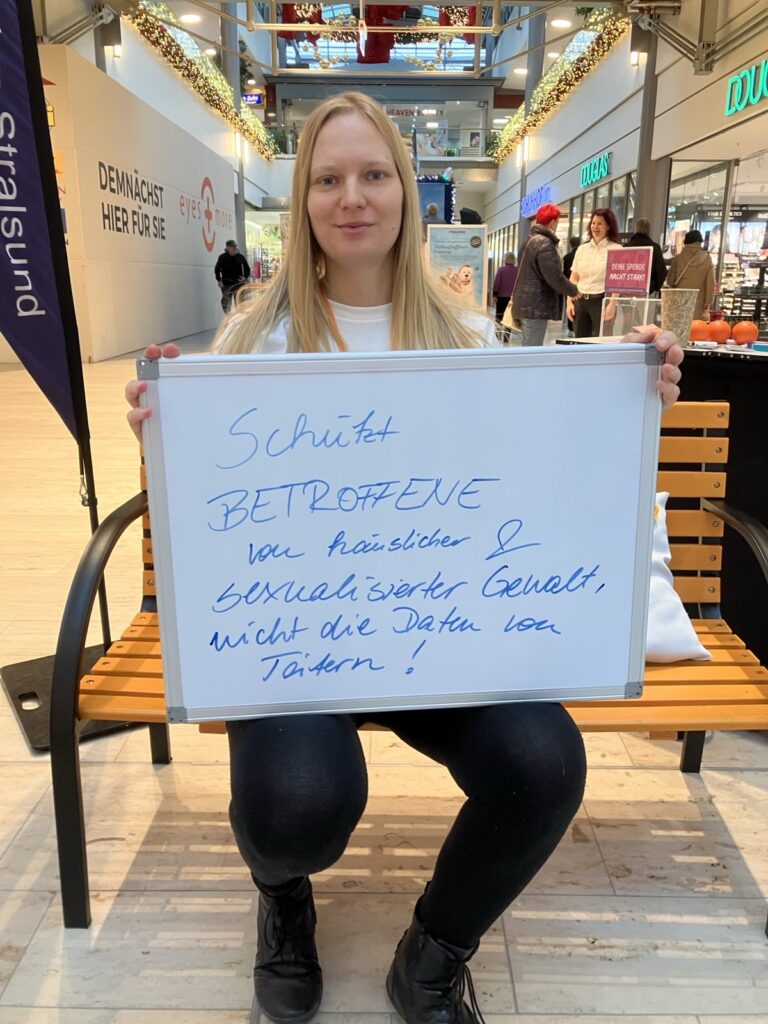 Stralsund
DEMNÄCHST
HIER FÜR SIE
eyes + more
DOUGLAS
DOUG
DEINE SPENDE
MACHT STARK!
Schützt
BETROFFENE
von häuslicher &
sexualisierter Gewalt,
nicht die Daten von
Tätern!